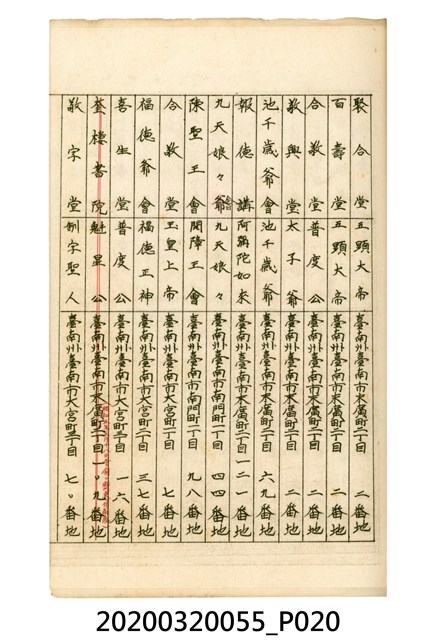 聚合堂 五顯大帝 臺南州臺南市末廣町二丁目 二番地
百壽堂 五顯大帝 臺南州臺南市末廣町二丁目 二番地
合敬堂 普度公 臺南州臺南市末廣町二丁目 二番地
敬興堂 太子爺 臺南州臺南市末廣町二丁目 二番地
池千歲爺會 池千歲爺 臺南州臺南市末廣町二丁目 六九番地
報德講 阿彌陀如來 臺南州臺南市末廣町二丁目 一二一番地
九天娘々會 九天娘々 臺南州臺南市南門町一丁目 四四番地
陳聖王會 開障王會 臺南州臺南市南門町二丁目 九八番地
合敬堂 玉皇上帝 臺南州臺南市大宮町二丁目 七番地
福德爺會 福德正神 臺南州臺南市大宮町二丁目 三七番地
喜生堂 普度公 臺南州臺南市大宮町三丁目 一六番地
奎樓書院 魁星公 臺南州臺南市末廣町二丁目 一〇九番地
敬字堂 制字聖人 臺南州臺南市大宮町二丁目 七〇番地
20200320055_P020